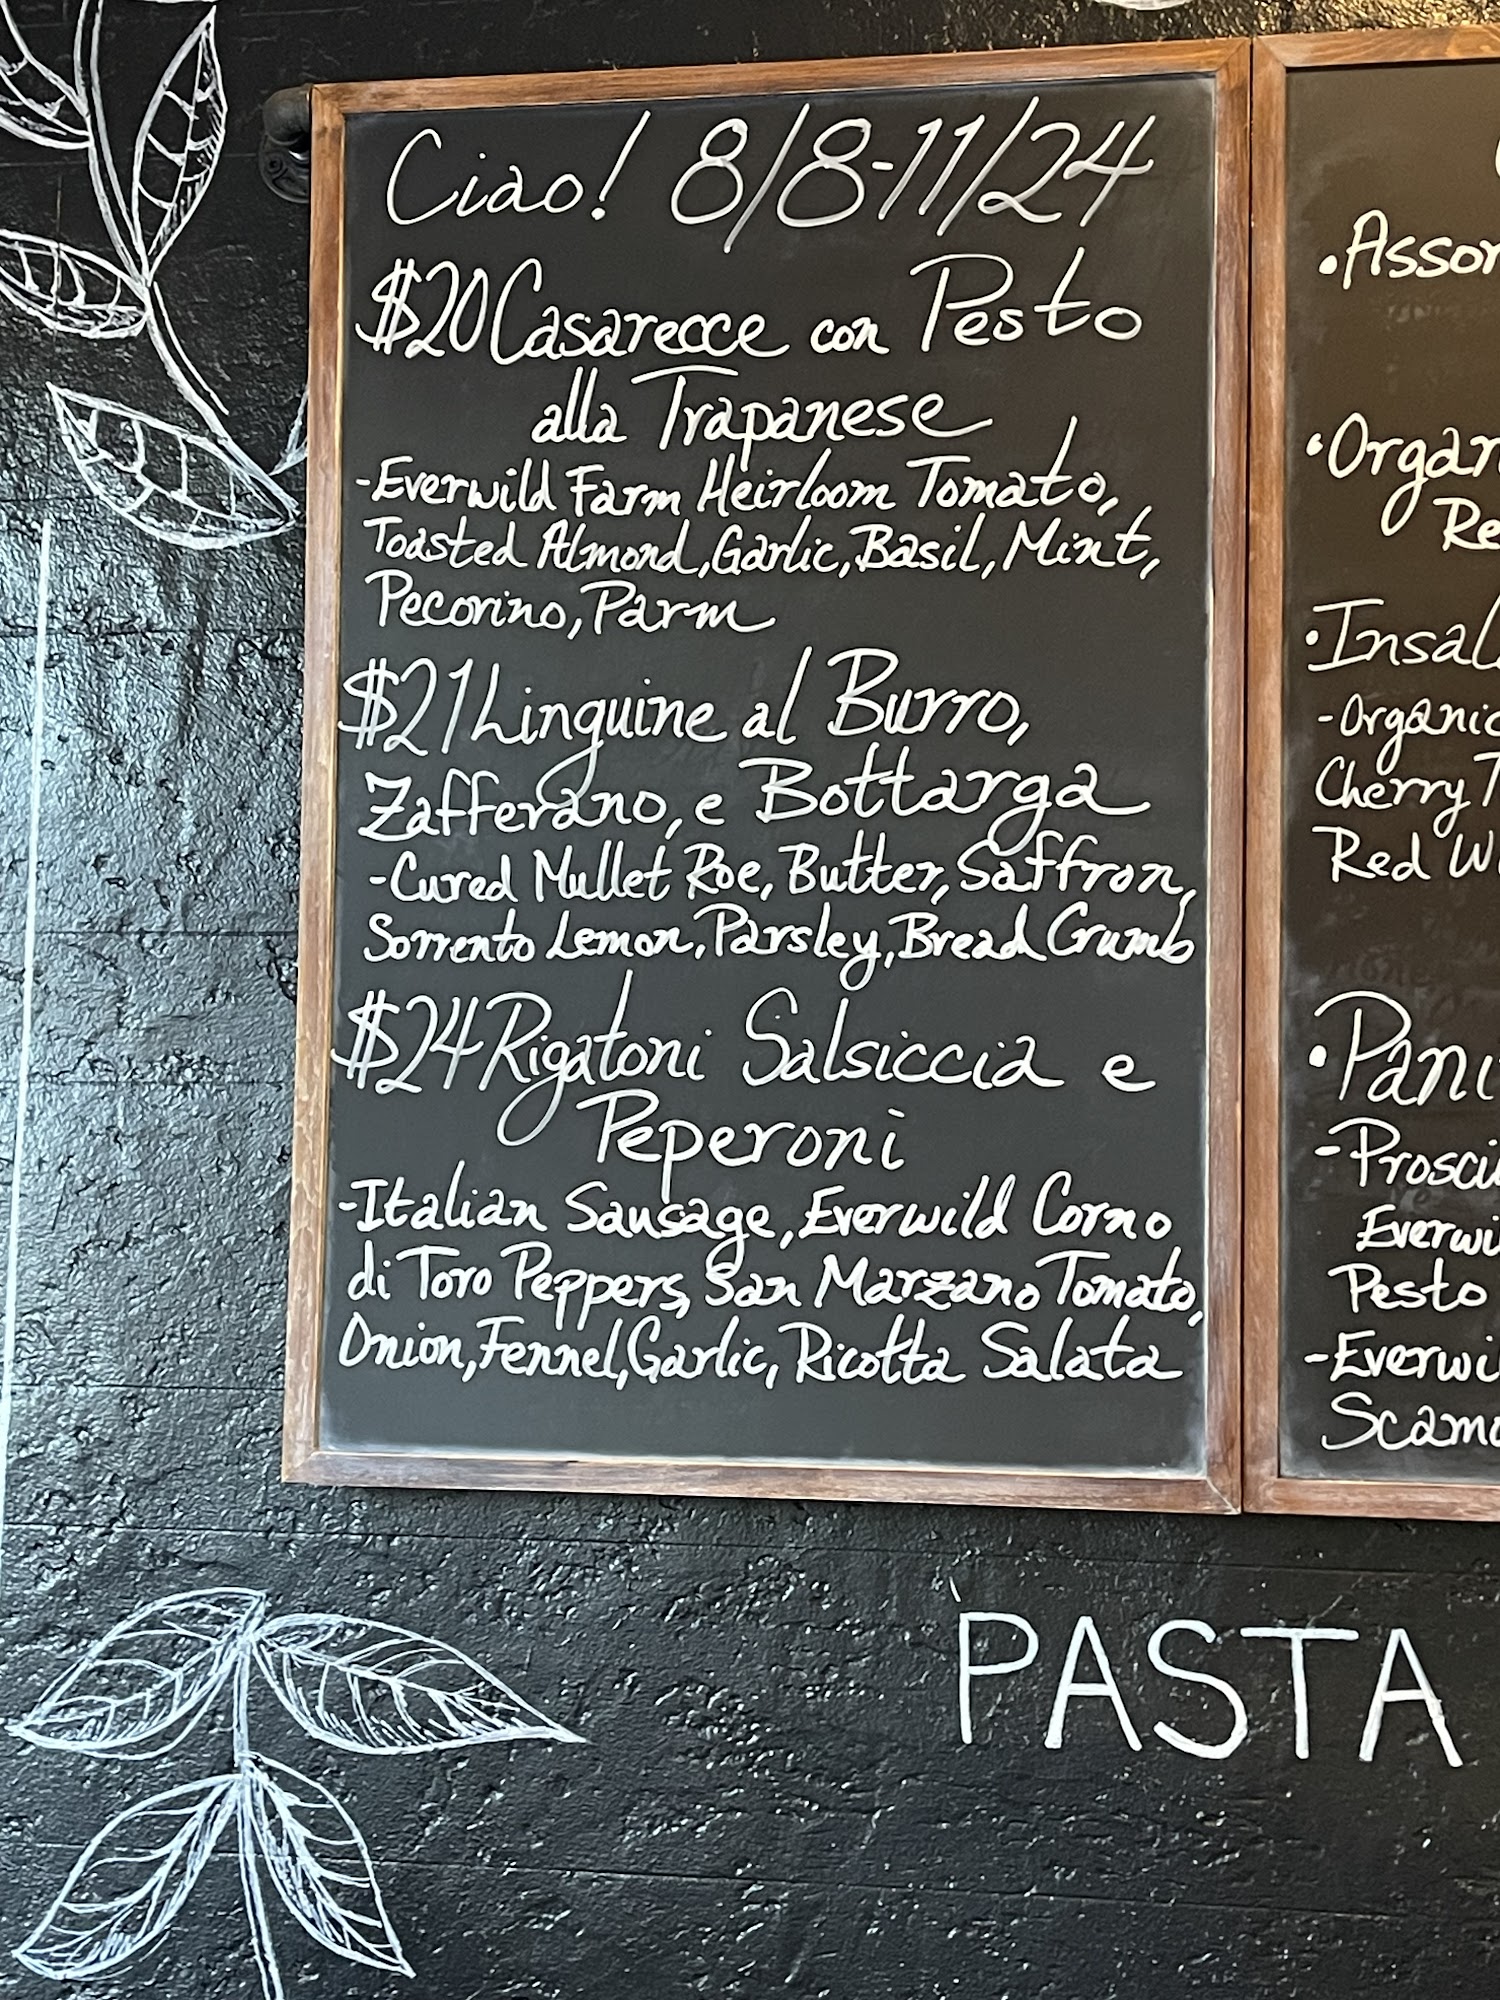 Ciao! 8/8-11/24
$20 Casarecce con Pesto
alla Trapanese
-Everwild Farm Heirloom Tomato,
Toasted Almond, Garlic, Basil, Mint,
Pecorino, Parm
$21 Linguine al Burro,
Zafferano, e Bottarga
-Cured Mullet Roe, Butter, Saffron,
Sorrento Lemon, Parsley, Bread Crumb
$24 Rigatoni Salsiccia e
Peperoni
-Italian Sausage, Everwild Corno
di Toro Peppers, San Marzano Tomato,
Onion, Fennel, Garlic, Ricotta Salata
•Assor
•Organ
Re
•Insal
-Organic
Cherry T
Red W
•Pani
-Prosci
Everwi
Pesto
-Everwi
Scamo
PASTA